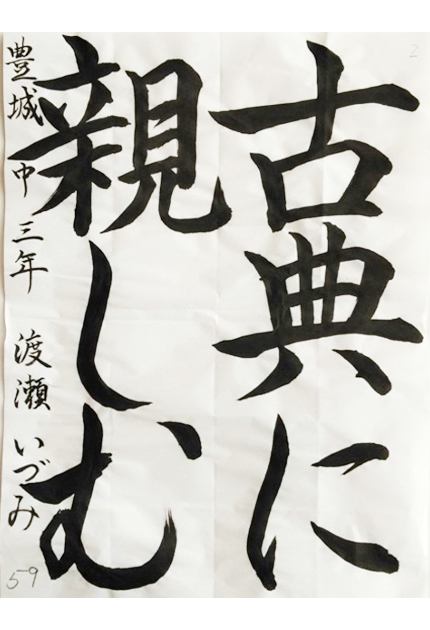 古典に
親しむ
豊城中三年 渡瀬いづみ
2
59